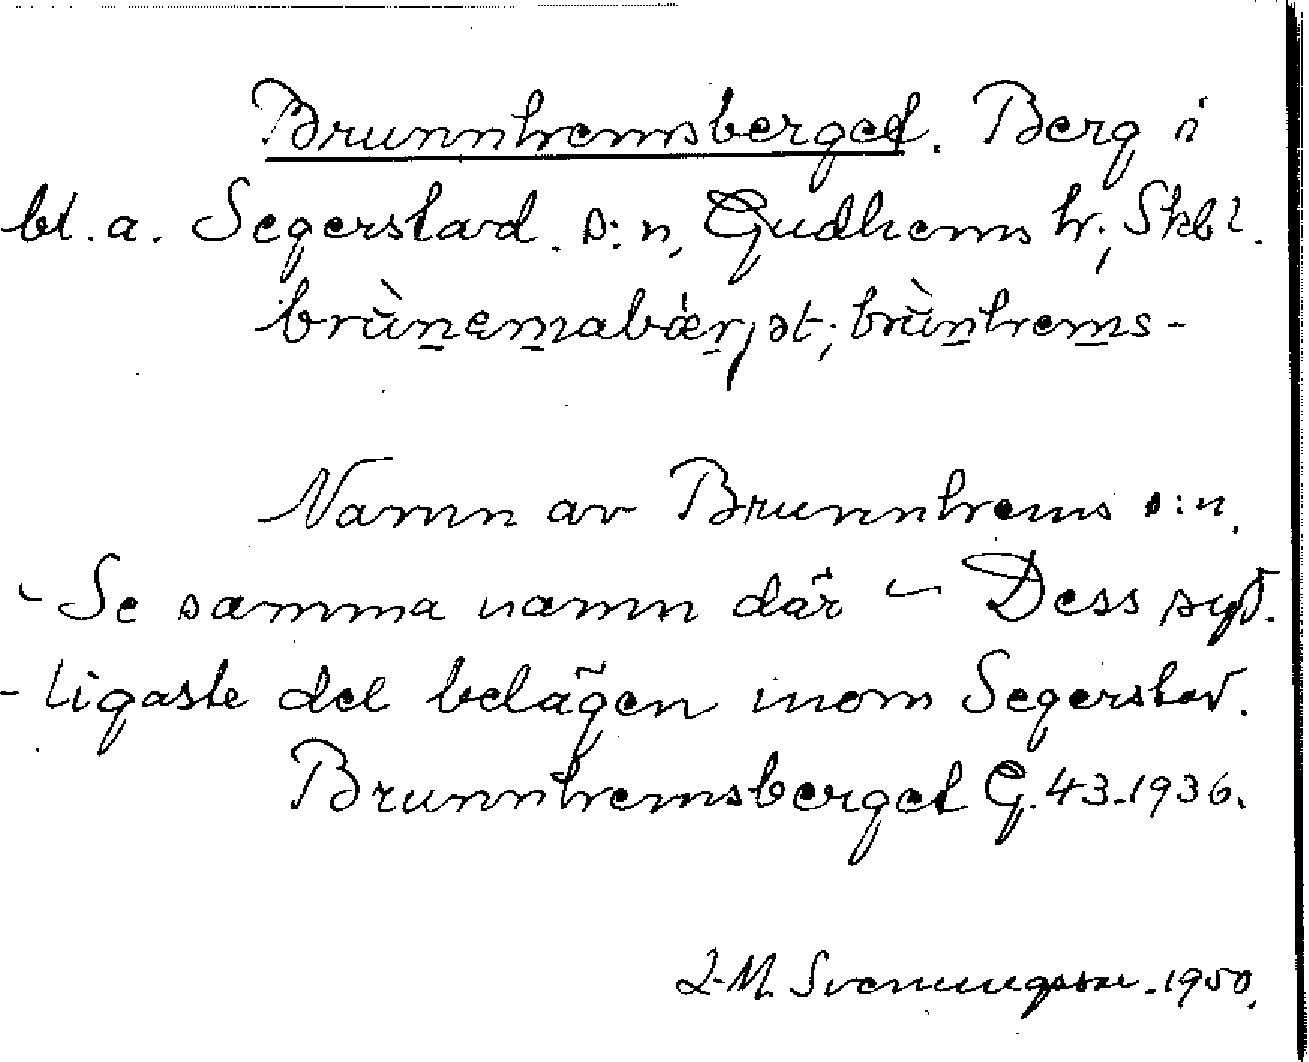 Brunnhemsberget. Berg i
bl.a. Segerstad. s:n, Gudhems hr, Skbl.
brùnemabærjət; brùnhems-
Namn av Brunnhems s:n.
- Se samma namn där - Dess syd-
- ligaste del belägen inom Segerstad.
Brunnhemsberget G. 43. 1936.
Svenungsson. 1950.